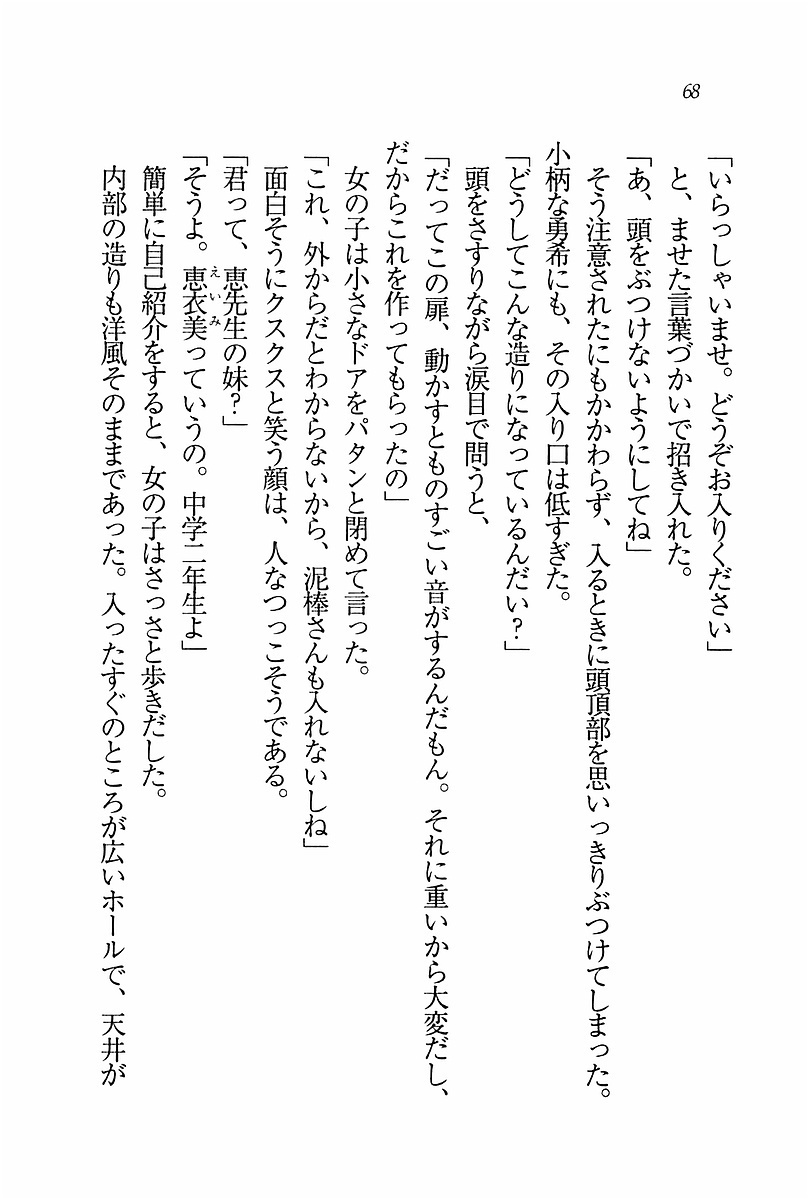 68
「いらっしゃいませ。どうぞお入りください」
と、ませた言葉づかいで招き入れた。
「あ、頭をぶつけないようにしてね」
そう注意されたにもかかわらず、入るときに頭頂部を思いっきりぶつけてしまった。
小柄な勇希にも、その入り口は低すぎた。
「どうしてこんな造りになっているんだい？」
頭をさすりながら涙目で問うと、
「だってこの扉、動かすとものすごい音がするんだもん。それに重いから大変だし、
だからこれを作ってもらったの」
女の子は小さなドアをパタンと閉めて言った。
「これ、外からだとわからないから、泥棒さんも入れないしね」
面白そうにクスクスと笑う顔は、人なつっこそうである。
「君って、恵先生の妹？」
「そうよ。恵衣美っていうの。中学二年生よ」
えいみ
簡単に自己紹介をすると、女の子はさっさと歩きだした。
内部の造りも洋風そのままであった。入ったすぐのところが広いホールで、天井が